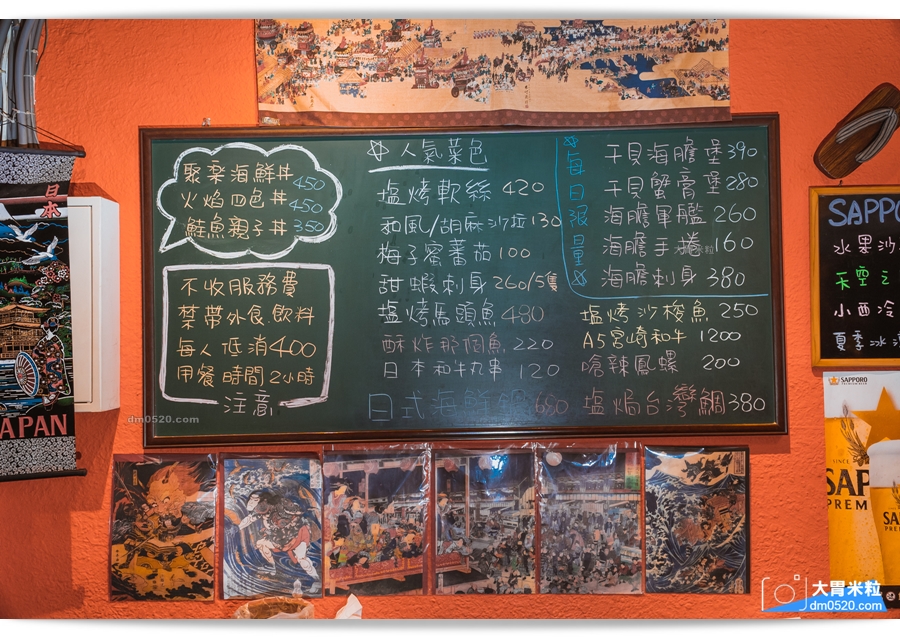 聚樂海鮮丼 450
火焰四色丼 450
鮭魚親子丼 350
不收服務費
禁帶外食.飲料
每人低消400
用餐時間2小時
注意
人氣菜色
塩烤軟絲 420
和風/胡麻沙拉 130
梅子蜜蕃茄 100
甜蝦刺身 260/5隻
塩烤馬頭魚 480
酥炸那個魚 220
日本和牛丸串 120
日式海 680
每日限量
干貝海膽堡 390
干貝蟹膏堡 280
海膽軍艦 260
海膽手捲 160
海膽刺身 380
塩烤沙梭魚 250
A5宮崎和牛 1200
嗆辣鳳螺 200
塩焗台灣鯛 380
日本
JAPAN
dm0520.com
SAPPO
水果沙
天空之
小西冷
夏季冰
SAPPORO
SINCE
SAP
PREM
大胃米粒
dm0520.com